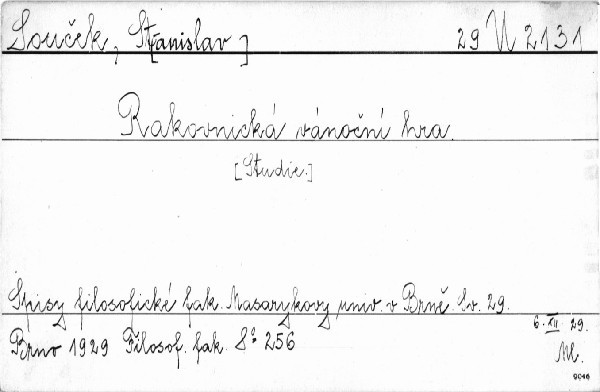 Souček, St[anislav] 29 U 2131
Rakovnická vánoční hra.
[Studie.]
Spisy filosofické fak. Masarykovy univ. v Brně. Sv. 29.
6. XII. 29.
Brno 1929 Filosof. fak. 8° 256
Ml.
9046